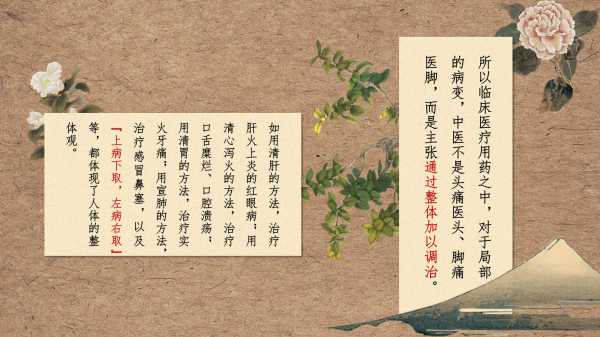 所以临床医疗用药之中，对于局部
的病变，中医不是头痛医头、脚痛
医脚，而是主张通过整体加以调治。
如用清肝的方法，治疗
肝火上炎的红眼病；用
清心泻火的方法，治疗
口舌糜烂、口腔溃疡；
用清胃的方法，治疗实
火牙痛；用宣肺的方法，
治疗感冒鼻塞，以及
『上病下取，左病右取』
等，都体现了人体的整
体观。